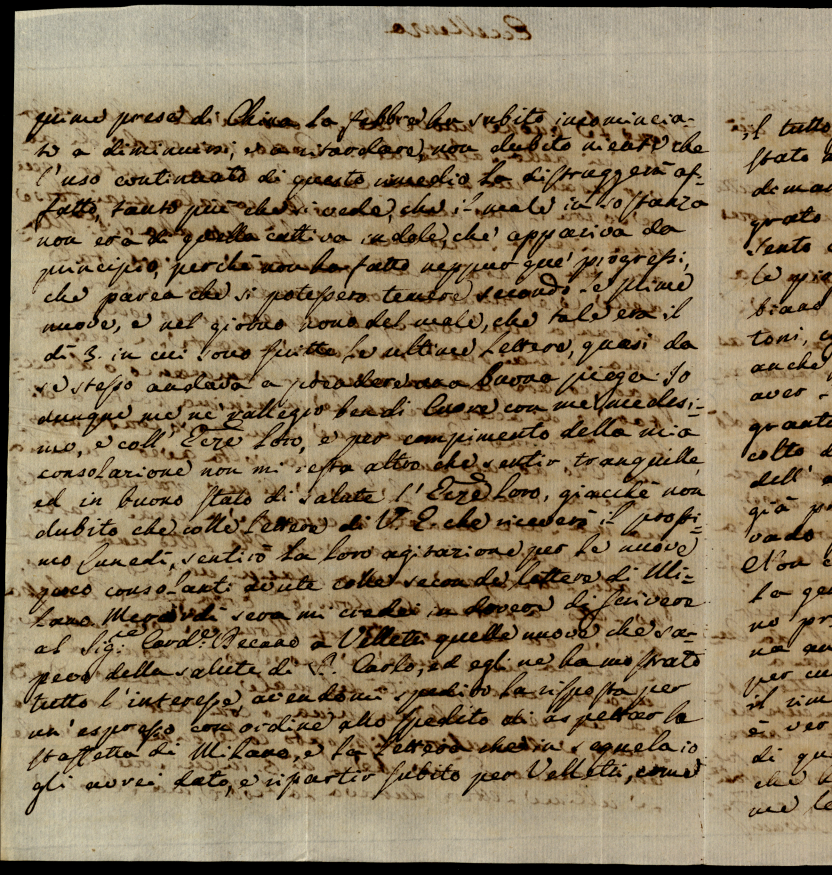 prime prese di China la febbre ha subito incomincia-
to a diminuirsi, e a ritardare, non dubito niente che
l'uso continuato di questo rimedio la distruggerà af-
fatto, tanto più che si vede, che il male in sostanza
non era di quella cattiva indole, che appariva da
principio, perchè non ha fatto neppur que' progressi,
che parea che si potessero temere secondo le prime
nuove, e nel giorno nono del male, che tale era il
di 3. in cui sono scritte le ultime Lettere, quasi da
se stesso andava a prendere una buona piega. Io
dunque me ne rallegro ben di Cuore con me medesi-
mo, e coll' Ecze Loro, e per compimento della mia
consolazione non mi resta altro che sentir tranquille
ed in buono stato di salute l' Ecze Loro, giacchè non
dubito che colle Lettere di V. E. che riceverò il prossi-
mo Lunedì, sentirò la loro agitazione per le nuove
poco consolanti avute colle seconde lettere di Mi-
lano. Mercordì sera mi credei in dovere di scrivere
al Sig.r Card.e Decano a Velletri quelle nuove che sa-
pevo della salute di D. Carlo, ed egli ne ha mostrato
tutto l'interesse, avendomi spedito la risposta per
un' espresso con ordine allo spedito di aspettar la
staffetta di Milano, e la Lettera che in sequela io
gli avrei dato, e ripartir subito per Velletri, come
il tutto
stato
grato
sento
toni,
anche
aver
colto
dell'
già
vado
Non
la
no
per
il
è ver
di
che
me
Eccellenza